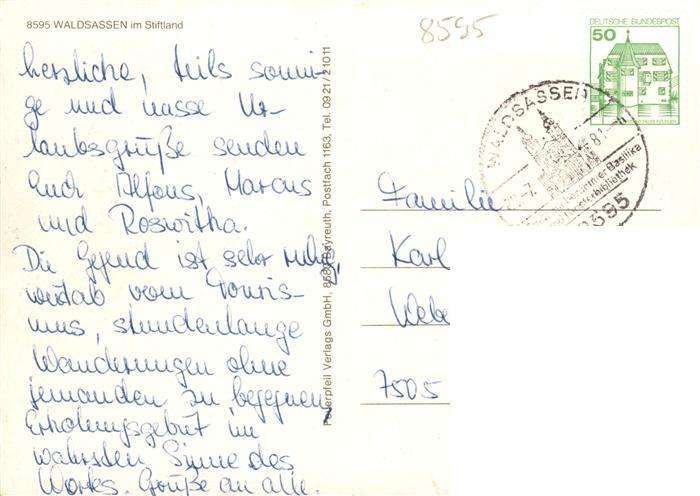 8595 WALDSASSEN im Stiftland
8595
DEUTSCHE BUNDESPOST
50
WALDSASSEN
Basilika
bibliothek
8595
herzliche, teils sonni-
ge und nasse Ur-
laubsgrüße senden
Euch Alfons, Marcus
und Roswitha.
Die Gegend ist sehr ruhig,
weitab vom Touris-
mus, stundenlange
Wanderungen ohne
jemanden zu begegnen,
Erholungsgebiet im
wahrsten Sinne des
Worts. Grüße an alle.
Verlags GmbH, 8580 Bayreuth, Postfach 1163, Tel. 0921/21011
Familie
Karl
Webe
7505